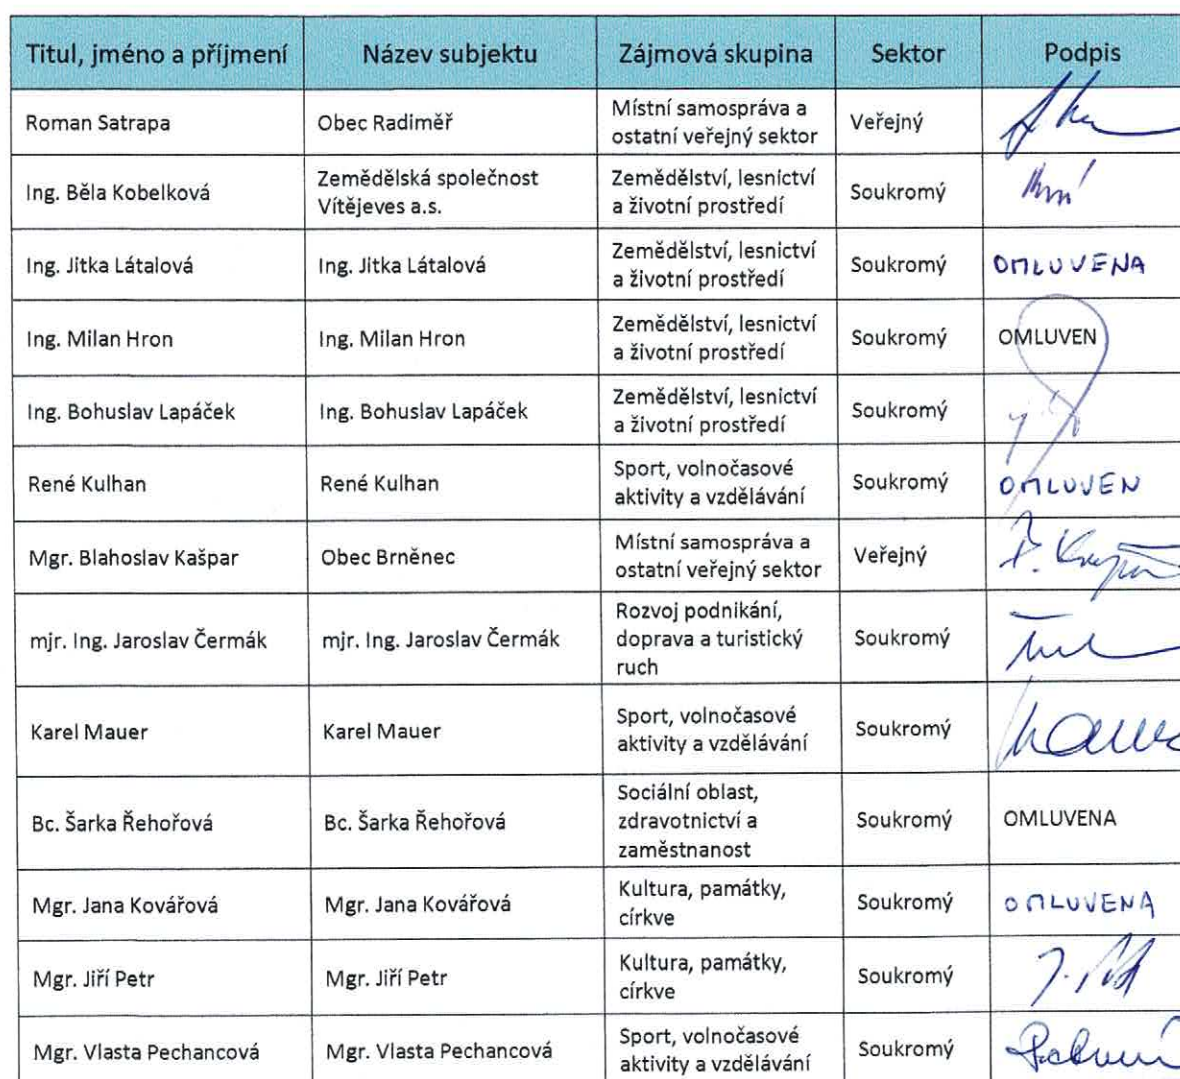 Titul, jméno a příjmení Název subjektu Zájmová skupina Sektor Podpis
Roman Satrapa Obec Radiměř Místní samospráva a ostatní veřejný sektor Veřejný
Ing. Běla Kobelková Zemědělská společnost Vítějeves a.s. Zemědělství, lesnictví a životní prostředí Soukromý
Ing. Jitka Látalová Ing. Jitka Látalová Zemědělství, lesnictví a životní prostředí Soukromý OMLUVENA
Ing. Milan Hron Ing. Milan Hron Zemědělství, lesnictví a životní prostředí Soukromý OMLUVEN
Ing. Bohuslav Lapáček Ing. Bohuslav Lapáček Zemědělství, lesnictví a životní prostředí Soukromý
René Kulhan René Kulhan Sport, volnočasové aktivity a vzdělávání Soukromý OMLUVEN
Mgr. Blahoslav Kašpar Obec Brněnec Místní samospráva a ostatní veřejný sektor Veřejný
mjr. Ing. Jaroslav Čermák mjr. Ing. Jaroslav Čermák Rozvoj podnikání, doprava a turistický ruch Soukromý
Karel Mauer Karel Mauer Sport, volnočasové aktivity a vzdělávání Soukromý
Bc. Šarka Řehořová Bc. Šarka Řehořová Sociální oblast, zdravotnictví a zaměstnanost Soukromý OMLUVENA
Mgr. Jana Kovářová Mgr. Jana Kovářová Kultura, památky, církve Soukromý OMLUVENA
Mgr. Jiří Petr Mgr. Jiří Petr Kultura, památky, církve Soukromý
Mgr. Vlasta Pechancová Mgr. Vlasta Pechancová Sport, volnočasové aktivity a vzdělávání Soukromý